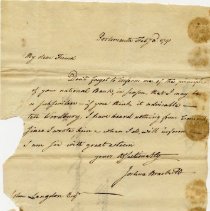 Portsmouth Feby 7th 1791
My dear Friend
Don't forget to inform me of the principles
of your national Bank, in season, that I may be
a subscriber — if you think it advisable —
tell Roxbury, I have heard nothing from
since I wrote him — when I do, will inform
I am Sir with great esteem
yours Affectionately
Joshua Brackett
John Langdon Esqr